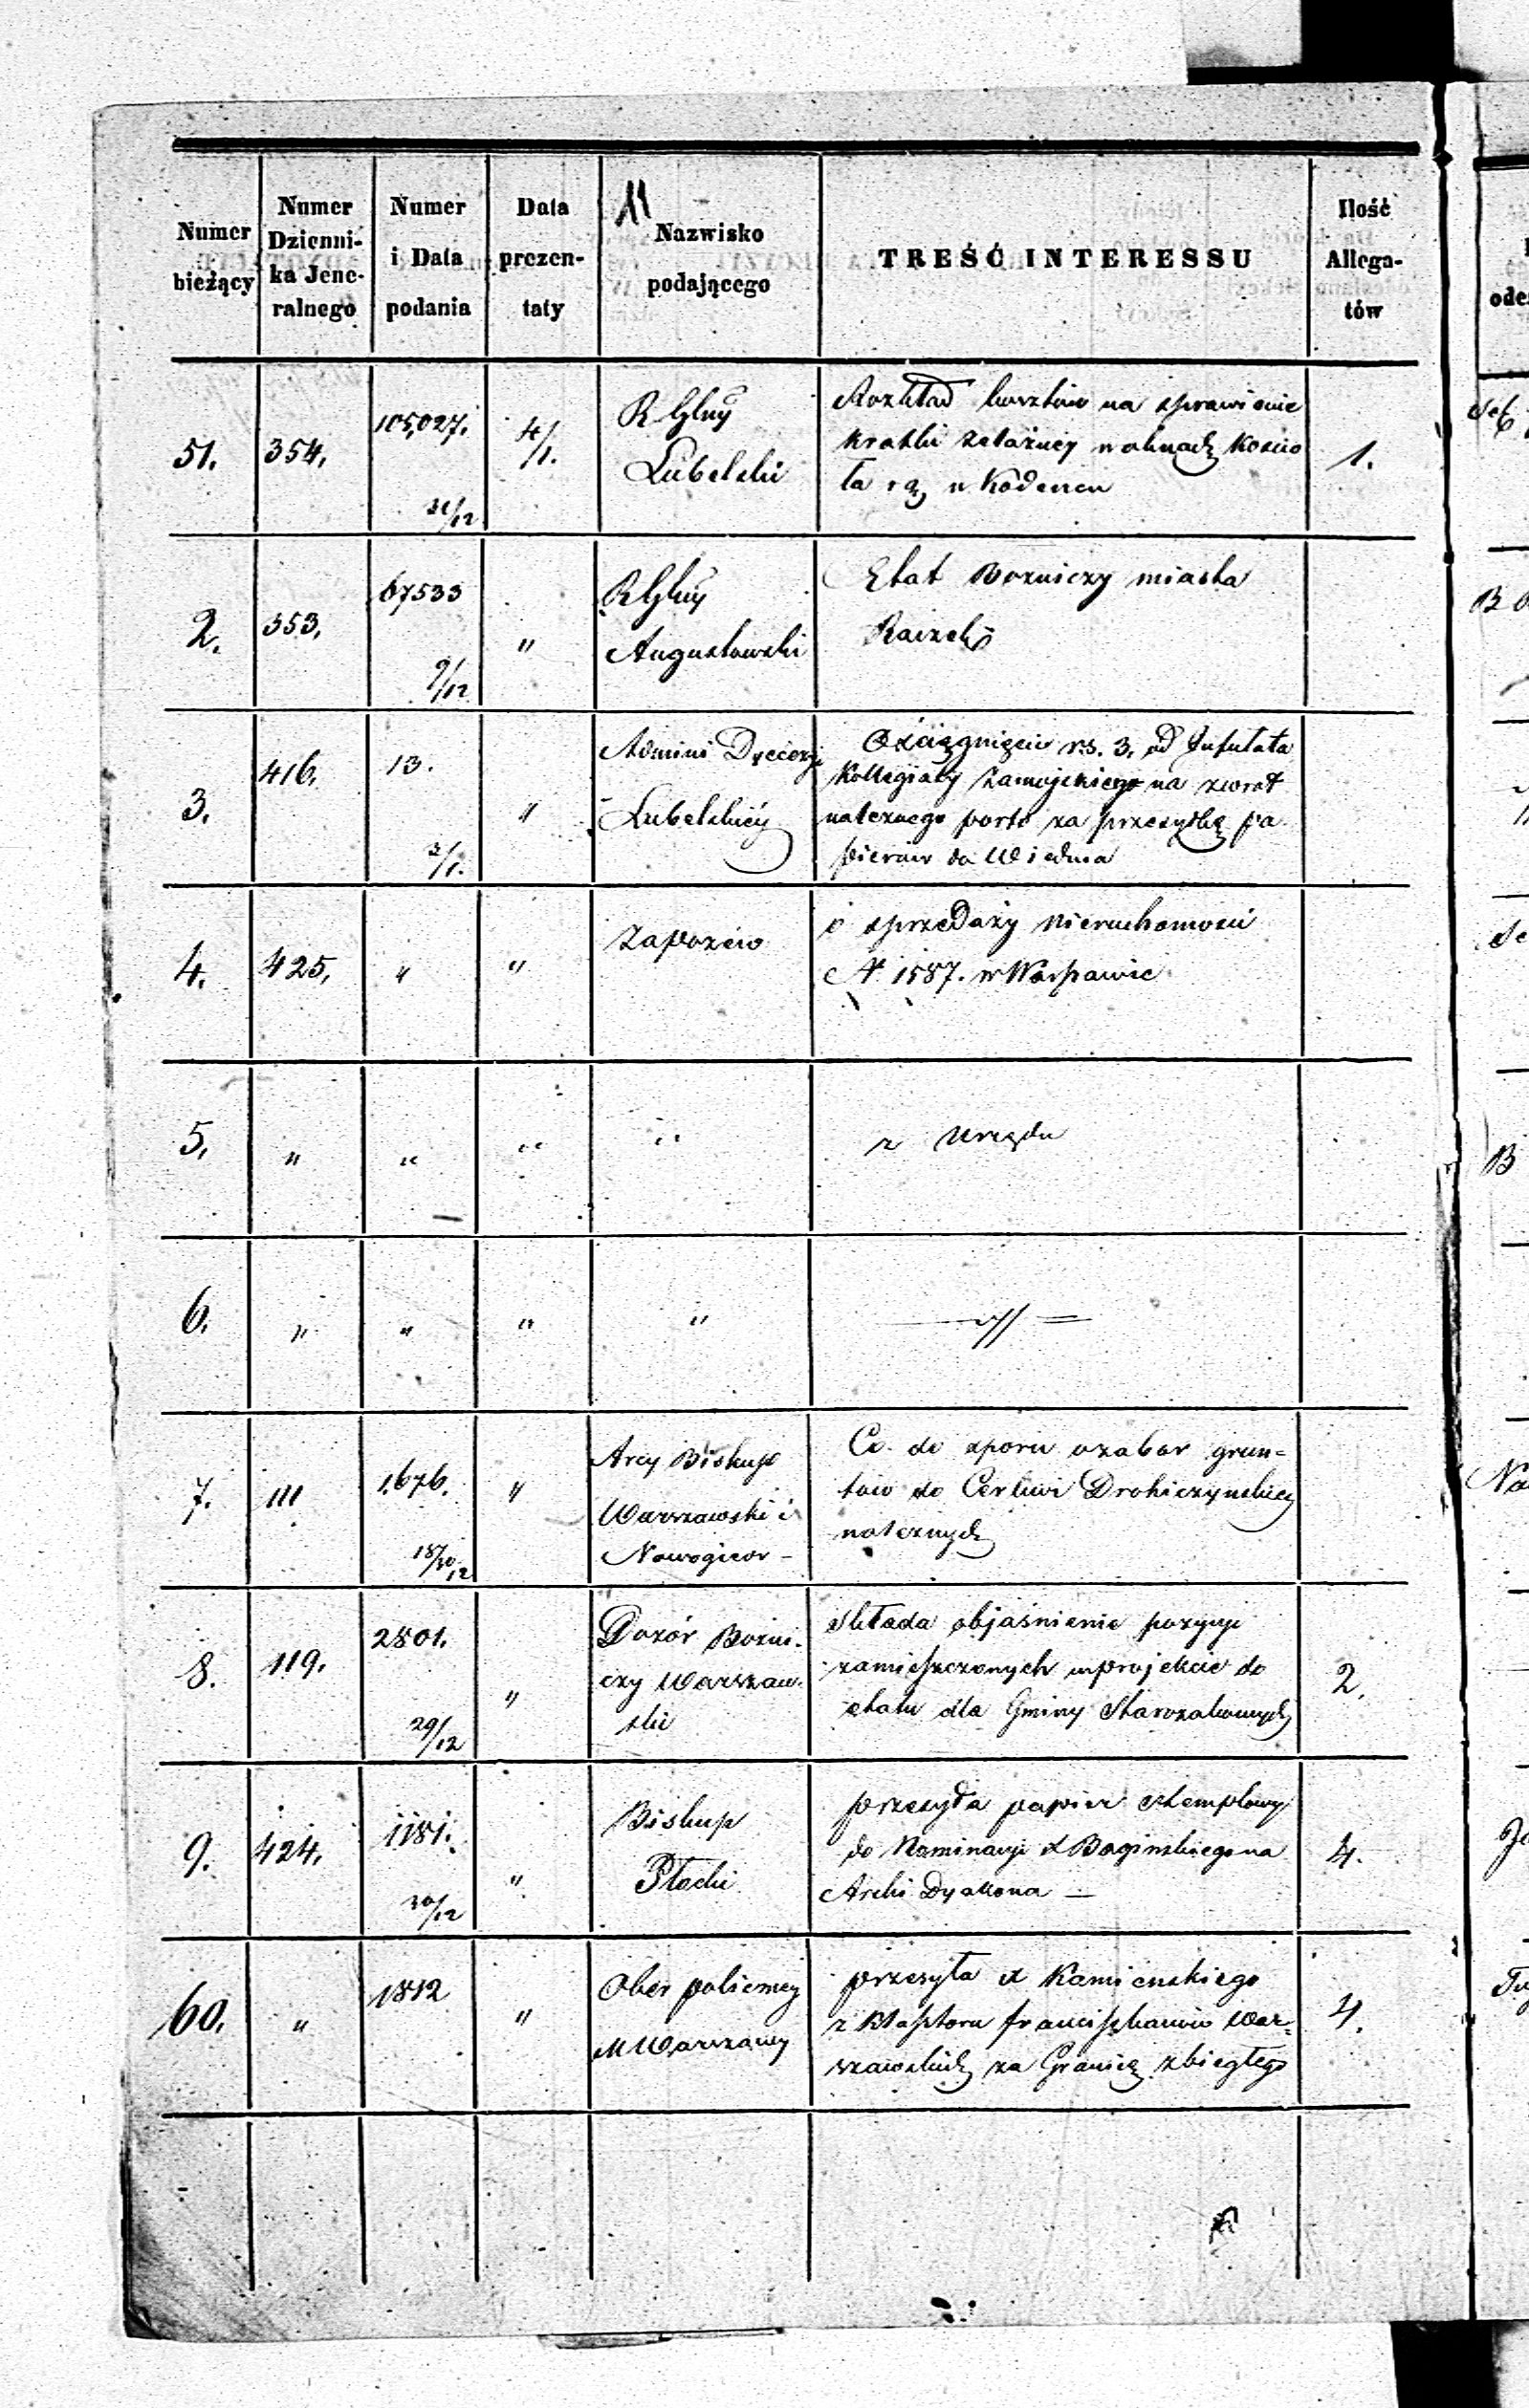 11
Numer bieżący | Numer Dzienni-ka Jene-ralnego | Numer i Data podania | Data prezen-taty | Nazwisko podającego | TREŚĆ INTERESSU | Ilość Allega-tów
51. | 354. | 105,027. 31/12 | 4/1. | R Glny
Lubelski | Rozkład kosztów na sprawienie
kratki żelaznej w oknach Kościo
ła r g, w Kodeniu | 1.
2. | 353. | 67533 9/12 | " | R Glny
Augustowski | Etat Bożniczy miasta
Raczek
3. | 416. | 13. 2/1. | " | Admini Dyecezyi
Lubelskiéj | O ściągnięcie rs. 3, od Infułata
Kollegiaty Zamojskiego na zwrot
należnego porto za przesyłkę pa
pierów do Wiednia
4. | 425. | " | " | Zapozew | o sprzedaży Nieruchomości
N 1587. w Warszawie
5. | " | " | " | " | z Urzędu
6. | " | " | " | " | —//—
7. | 111 | 1676. 18/30 12 | " | Arcy Biskup
Warszawski i
Nowogieor- | Co do sporu o zabor grun=
tów do Cerkwi Drohiczynskiej
należnych
8. | 119. | 2801. 29/12 | " | Dozór Bożni-
czy Warszaw-
ski | Składa objaśnienie pozycyi
zamieszczonych w projekcie do
etatu dla Gminy Starozakonnych | 2.
9. | 424. | 1181. 30/12 | " | Biskup
Płocki | przesyła papier stemplowy
do Nominacyi X Bagińskiego na
Archi Dyakona — | 4.
60. | " | 1812 | " | Ober policmej
M Warszawy | przesyła X Kamieńskiego
z Klasztoru franciszkanów War=
szawskich za Granicę zbiegłego | 4.